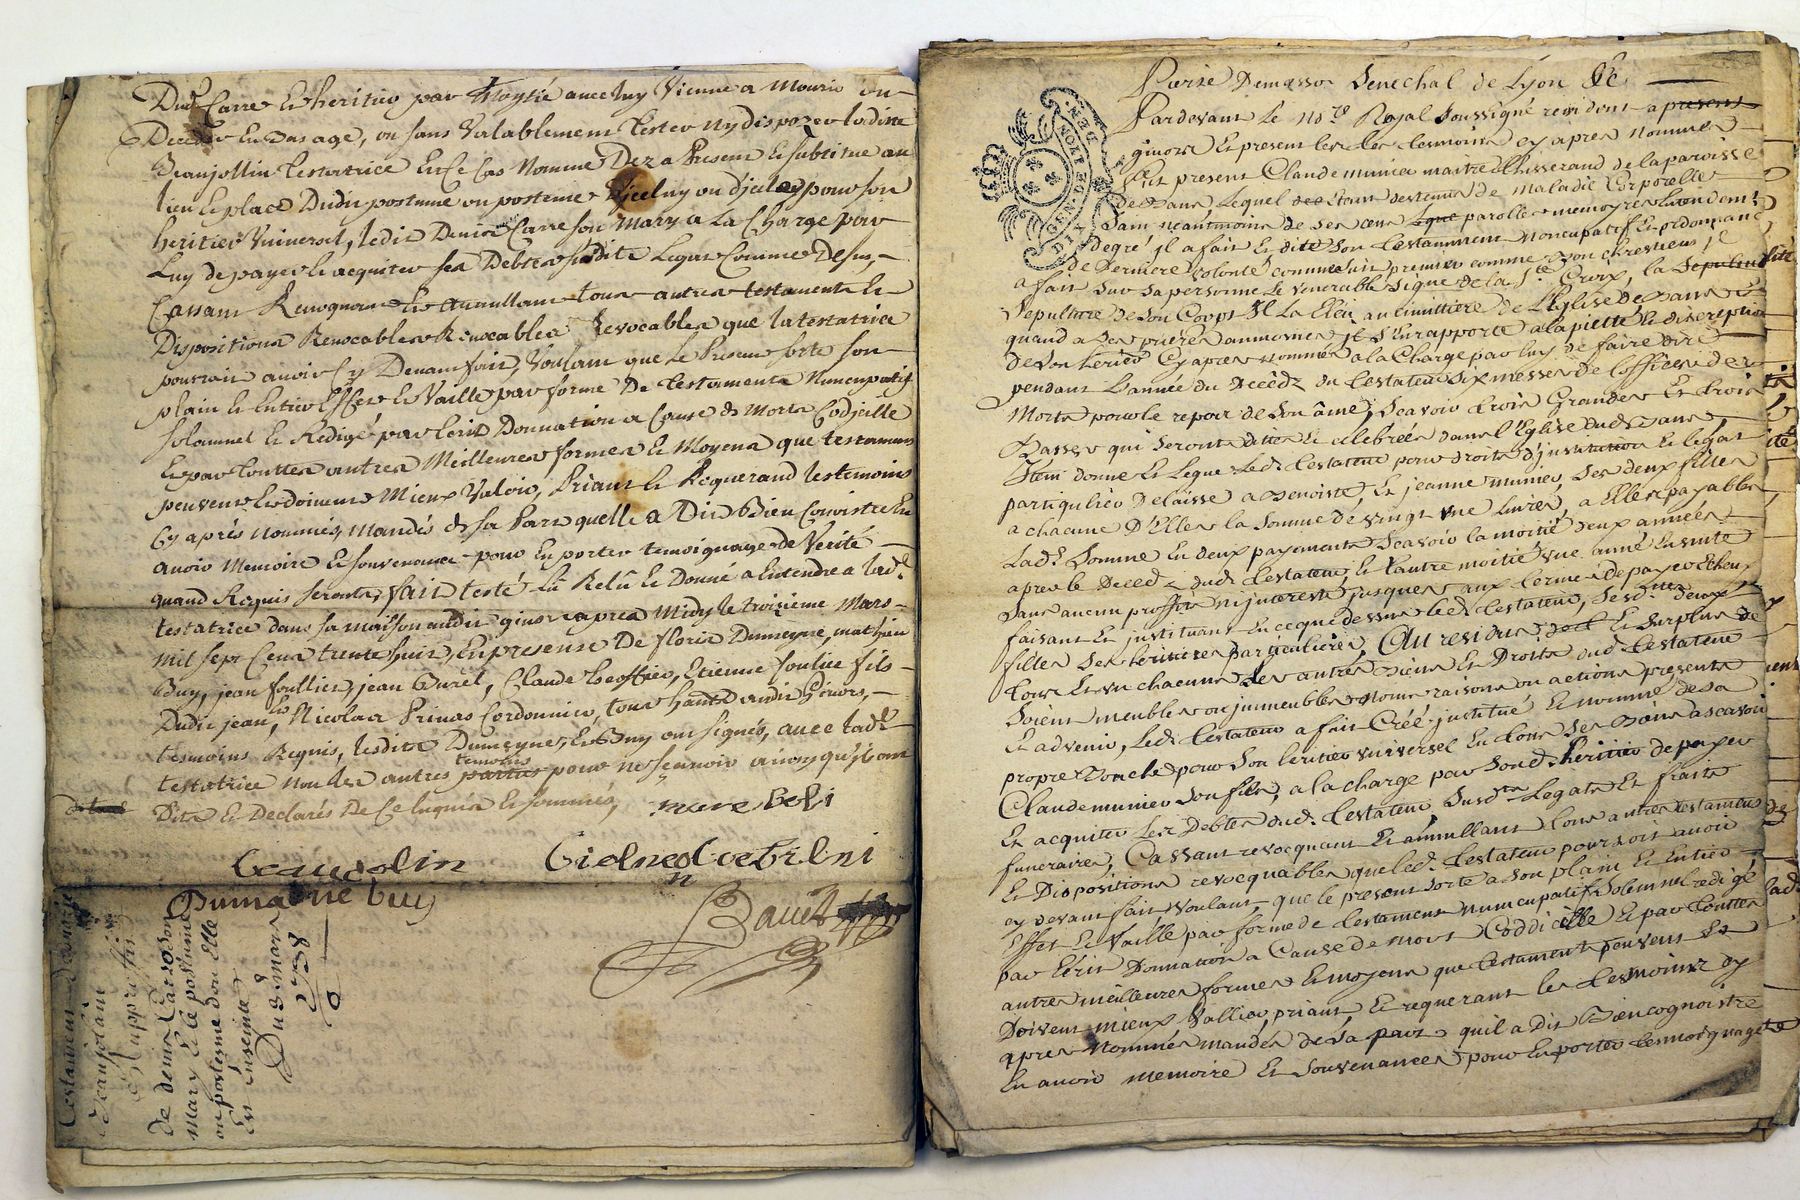 Dud. Carre et heritier par Moytié avec luy Vienne a Mourir ou
Deceder en bas age, ou sans Valablement tester ny disposer ladite
Beaujollin testatrice en Ce Cas Nomme Dez a Present et substitue au
lieu et place Dudit postume ou postume d'jceluy ou d'jcelle pour son
heritier Universel, ledit Denis Carre son Mary a La Charge par
Luy de payer et acquiter ses Debtes susdits Legats Comme Desus,
Cassant Revoquant et annullant tous autres testaments et
Dispositions Revocables Revocables que la testatrice
pourroit avoir Cy Devant fait, Voulant que Le Present sorte son
plain et Entier Effet et Vaille par forme De testament Noncupatif
solamnel et Redigé par Ecrit Donnation a Cause de Mort Codicille
et par touttes autres Meilleures formes et Moyens que testament
peuvent et doivent Mieux Valoir, Priant et Requerand les temoins
Cy aprés nommés, mandés de sa Part quelle a Dit Bien Connoistre En
avoir Memoire et souvenance pour En porter temoignage de Verité
quand Requis seronts, fait testé Lû Relû et Donné a Entendre a lad.e
testatrice dans sa maison audit givors apres Midy le troisieme Mars
mil sept Cent trente huit, En presence De floris Dumeyne, mathieu
Buy, jean foullier, jean Burel, Claude Leoffier, Etienne foulie fils
Dudit jean, Nicolas Primas Cordonnier, tous habts audit Givors,
temoins Requis, lesdits Dumeyne, et Buy ont signés, avec lad.e
testatrice non les autres parties pour ne sçavoir ainsy qu'jls ont
temoins
Dits et Declarés De Ce Enquis et sommés,
Dumayne buy
Testament
de denis Carre son
mary et le postume
ou postume dont elle
Est enseinte
Du 3e mars
1738
Pierre Demasso Senechal de Lyon &c
Pardevant Le no.re Royal Soussigné residant a present
givors Et present les temoins cy apres nommés
fut present Claude munier maitre thisserand de la paroisse
de Bans Lequel Etant detenus de maladie Corporelle
Sain neantmoins de ses sens parolle memoyre Entendement
de gré jl a fait Et dité Son testamment noncupatif Et ordonnance
de Derniere Volonté comme suit premier comme bon chrestiens jl
a fait sur sa personne le venerable signe de la S.te Croix, la Sepulture
Sepulture de son Corps Jl La Eleu au cimittiere de L'Eglise de Bans Et
quand a Ses prieres aumosnes jl s'En rapporte a la piette Et discreption
de Son heritier Cy apres nommés a la Charge par luy de faire dire
pendant l'année du Decédz du testateur Six messes de l'office des
Morts pour le repos de Son âme, Scavoir trois Grandes Et trois
Basses qui Seront dittes Et celebrées dans l'Eglise dud. Bans
Jtem donne Et legue Led. testateur pour droits d'justitution Et legat
partiqulier delaisse a Benoiste, Et jeanne munier, Ses deux filles
a chacune D'Elles la somme de vingt une livres, a Elles payables
Lad.e Somme En deux payements Scavoir la moitié deux années
apres le Deceds dud. testateur, Et l'autre moitié une anné Ensuite
Sans aucun proffits ni jnterests jusques aux termes de payes Echeus
faisant Et justituant En ce que dessus led. testateur, Sesdittes deux
filles Ses heritieres particulieres, Au residus Et Surplus de
tous Et un chacuns Les autres Biens Et Droits dud. testateur
Soient meubles ou jmmeubles noms raisons ou actions presents
Et advenir, Led. testateur a fait Créé justitué Et nommé de sa
propre Bouche pour Son heritier universel En tous Ses Biens a scavoir
Claude munier Son fils, a la charge par Sond. heritier de payer
Et acquiter Les Debtes dud. testateur Susd.ts Legats Et fraits
funeraires, Cassant revocquant Et annullant tous autres testaments
Et Dispositions revocquables que led. testateur pourroit avoir
cy devant fait, Voulant, que le present sorte a Son plain Et Entier
Effet Et Vaille par forme de testament numcupatif Solemnel redigé
par Ecrit Donnation a Cause de mort Coddicille Et par touttes
autres meilleures formes Et moyens que testament peuvent Et
Doivent mieux Vallier, priant, Et requerant les tesmoins cy
apres Nommés mandés de sa part quil a Dit Bien cognoistre
En avoir memoire Et Souvenances pour En porter temoignages